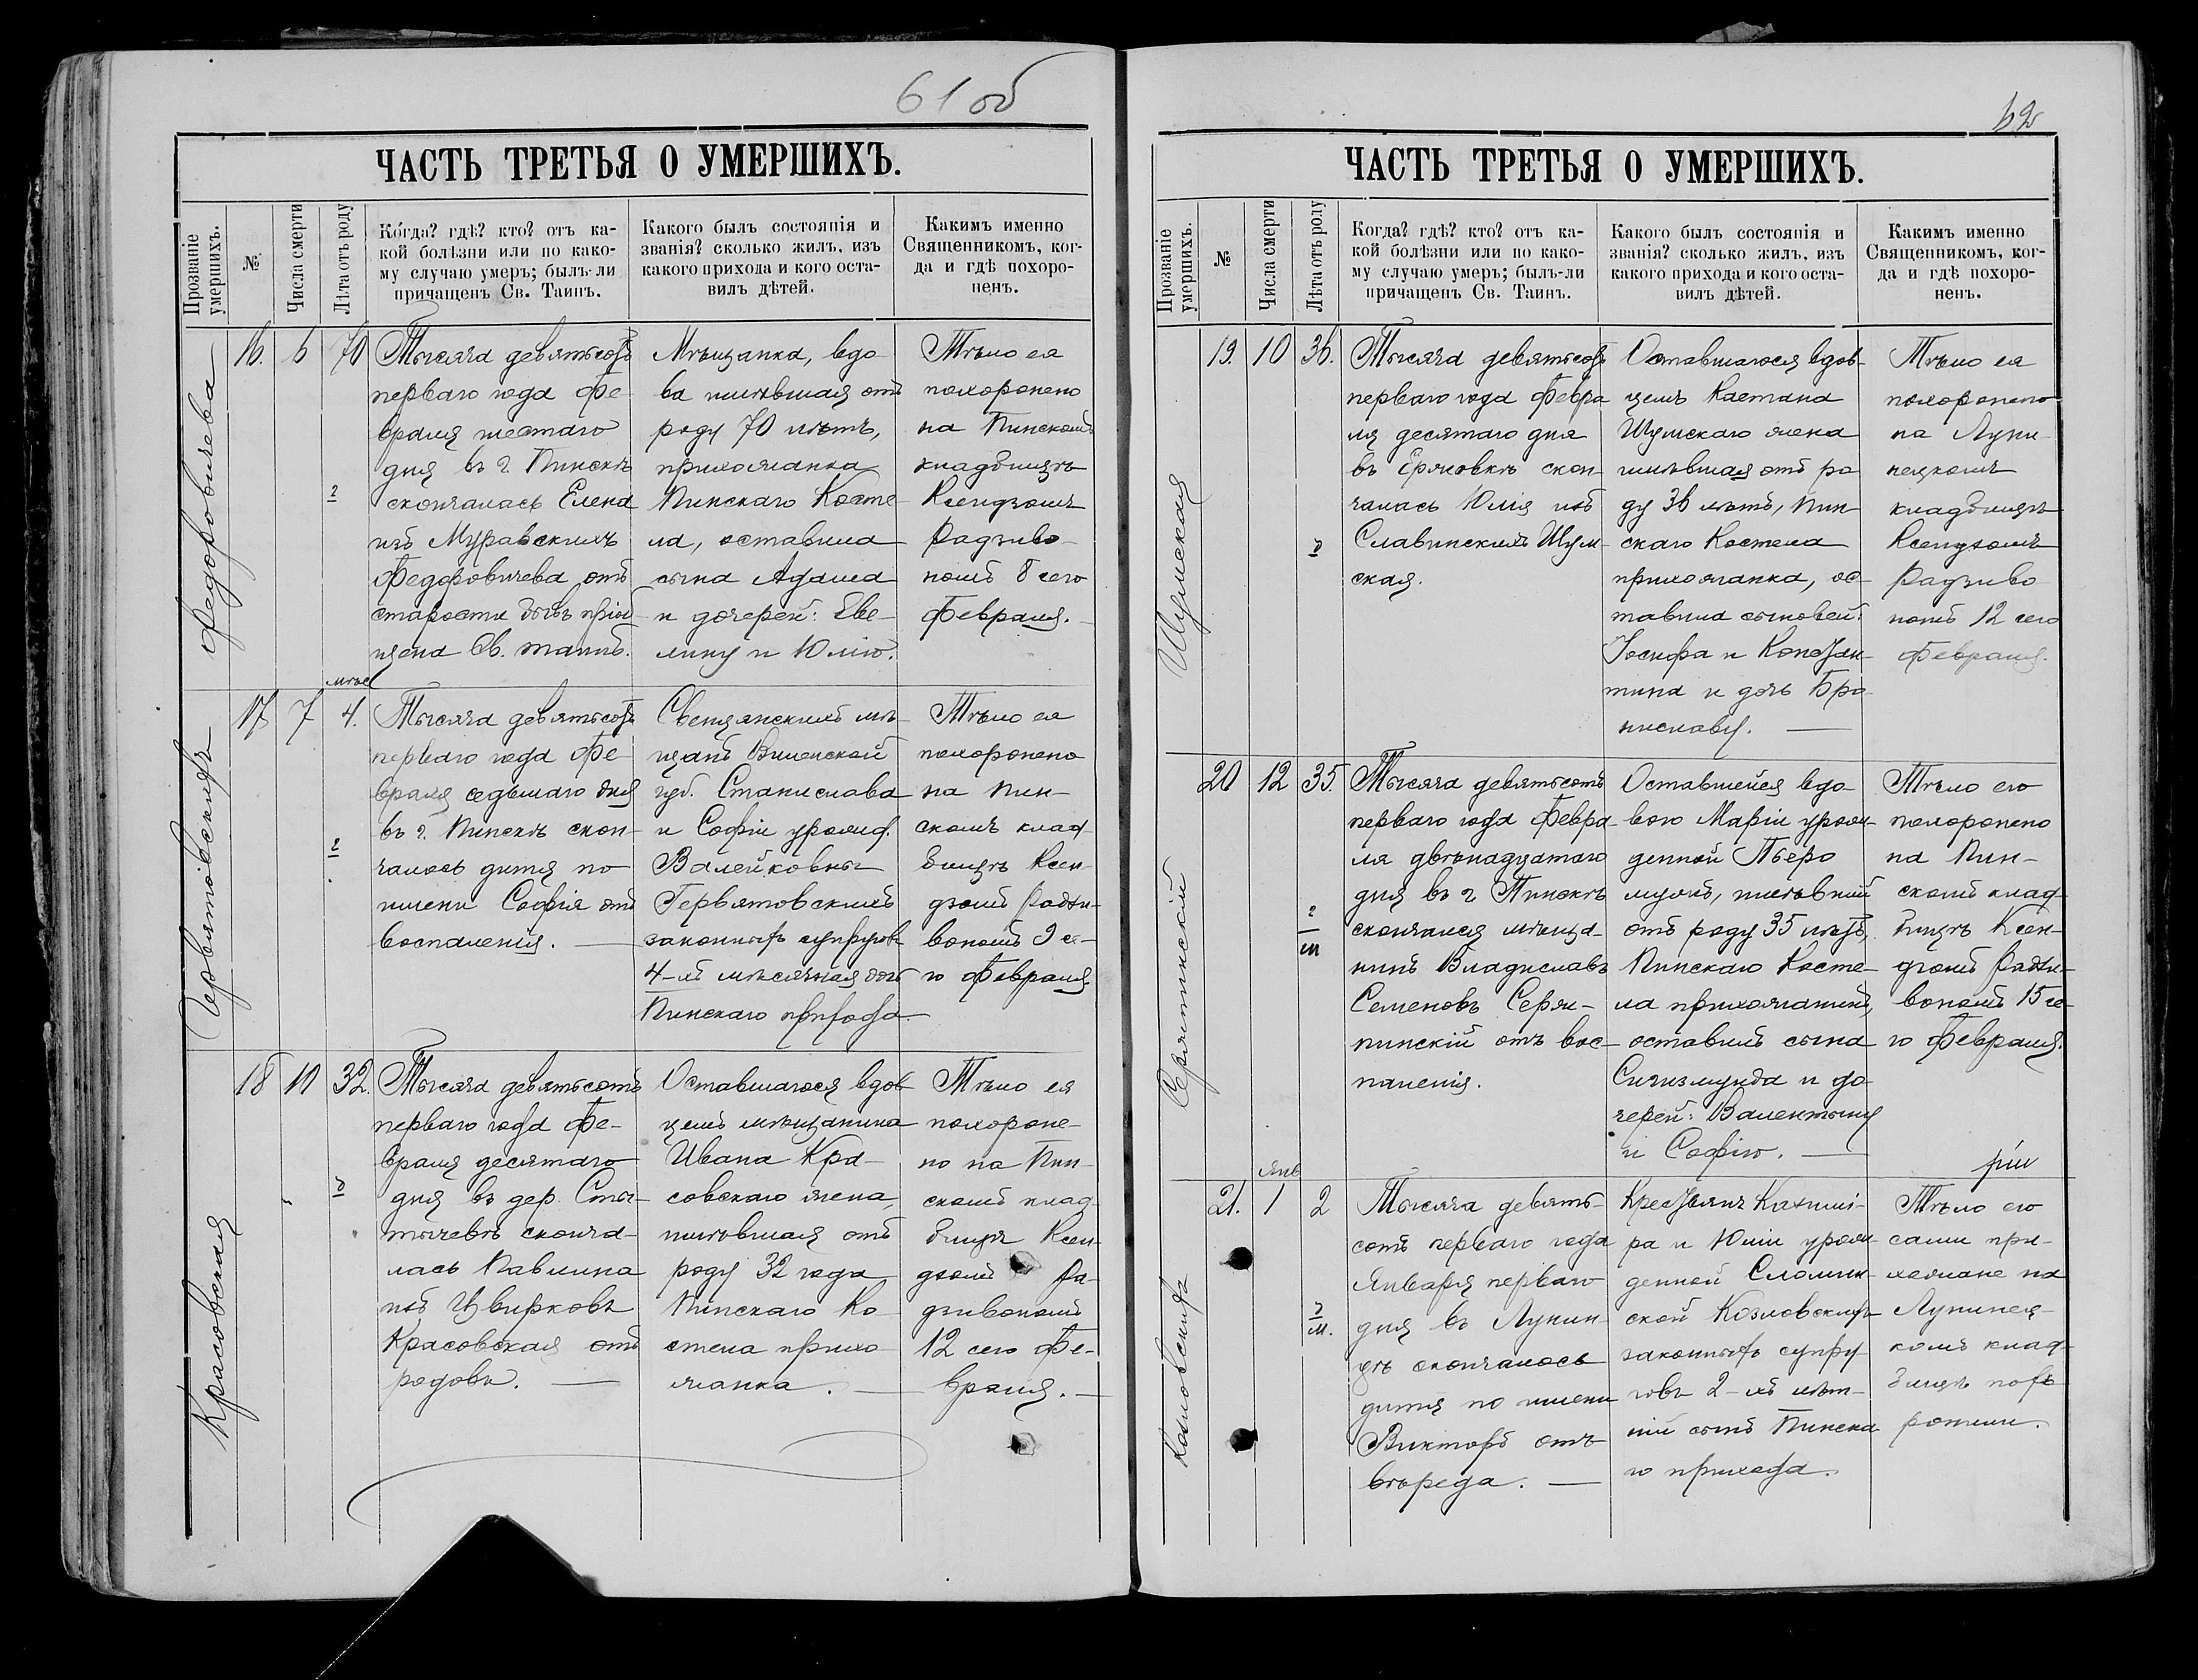 61 об
ЧАСТЬ ТРЕТЬЯ О УМЕРШИХЪ.
Прозваніе умершихъ.
№
Числа смерти
Лѣта отъ роду
Когда? гдѣ? кто? отъ ка-
кой болѣзни или по како-
му случаю умеръ; былъ-ли
причащенъ Св. Таинъ.
Какого былъ состоянія и
званія? сколько жилъ, изъ
какого прихода и кого оста-
вилъ дѣтей.
Какимъ именно
Священникомъ, ког-
да и гдѣ похоро-
ненъ.
Федоровичева
16. 6 70
Тысяча девятьсотъ
перваго года Фе-
враля шестаго
дня въ г. Пинскѣ
скончалась Елена
изъ Муравскихъ
Федоровичева отъ
старости бывъ пріоб-
щена Св. таинъ.
Мѣщанка, вдо-
ва имѣвшая отъ
роду 70 лѣтъ,
прихожанка
Пинскаго Косте-
ла, оставила
сына Адама
и дочерей: Еве-
лину и Юлію.
Тѣло ея
похоронено
на Пинскомъ
кладбищѣ
Ксендзомъ
Радзиво-
номъ 8 сего
Февраля.
Гервятовскихъ
17 7 мѣс 4.
Тысяча девятьсотъ
перваго года Фе-
враля седьмаго дня
въ г. Пинскѣ скон-
чалось дитя по
имени Софія отъ
воспаленія.
Свенцянскихъ мѣ-
щанъ Виленской
губ. Станислава
и Софіи урожд.
Валейковны
Гервятовскихъ
законныхъ супруговъ
4-хъ мѣсячная дочь
Пинскаго прихода.
Тѣло ея
похоронено
на Пин-
скомъ клад-
бищѣ Ксен-
дзомъ Радзи-
вономъ 9 се-
го Февраля.
Красовская
18 10 32.
Тысяча девятьсотъ
перваго года Фе-
враля десятаго
дня въ дер. Сты-
тычевѣ сконча-
лась Павлина
изъ Цвирковъ
Красовская отъ
родовъ.
Оставшагося вдов-
цемъ мѣщанина
Ивана Кра-
совскаго жена,
имѣвшая отъ
роду 32 года
Пинскаго Ко-
стела прихо-
жанка.
Тѣло ея
похороне-
но на Пин-
скомъ клад-
бищѣ Ксен-
дзомъ Ра-
дзивономъ
12 сего Фе-
враля.
62
ЧАСТЬ ТРЕТЬЯ О УМЕРШИХЪ.
Прозваніе умершихъ.
№
Числа смерти
Лѣта отъ роду
Когда? гдѣ? кто? отъ ка-
кой болѣзни или по како-
му случаю умеръ; былъ-ли
причащенъ Св. Таинъ.
Какого былъ состоянія и
званія? сколько жилъ, изъ
какого прихода и кого оста-
вилъ дѣтей.
Какимъ именно
Священникомъ, ког-
да и гдѣ похоро-
ненъ.
Шумская
19. 10 36.
Тысяча девятьсотъ
перваго года Февра
ля десятаго дня
въ Ержовкѣ скон-
чалась Юлія изъ
Славинскихъ Шум-
ская.
Оставшагося вдов-
цемъ Каетана
Шумскаго жена
имѣвшая отъ ро
ду 36 лѣтъ, Пин
скаго Костела
прихожанка, ос-
тавила сыновей:
Іосифа и Констан-
тина и дочь Бро
ниславу.
Тѣло ея
похоронено
на Луни-
нецкомъ
кладбищѣ
Ксендзомъ
Радзиво
номъ 12 сего
Февраля.
20 12 35.
Тысяча девятьсотъ
перваго года Февра-
ля двѣнадцатаго
дня въ г Пинскѣ
скончался мѣща-
нинъ Владиславъ
Семеновъ Сержи-
пинскій отъ вос-
паленія.
Оставшейся вдо-
вою Маріи урож-
денной Пьеро
мужъ, имѣвшій
отъ роду 35 лѣтъ,
Пинскаго Косте-
ла прихожанинъ,
оставилъ сына
Сигизмунда и до-
черей: Валентыну
и Софію.
Тѣло его
похоронено
на Пин-
скомъ клад-
бищѣ Ксен-
дзомъ Радзи-
вономъ 15 се-
го Февраля.
Козловскихъ
21. Янв 1 2
Тысяча девять-
сотъ перваго года
Января перваго
дня въ Лунин-
цѣ скончалось
дитя по имени
Викторъ отъ
вѣреда.
Крестьянъ Казимі-
ра и Юліи урож-
денной Сломин-
ской Козловскихъ
законныхъ супру
говъ 2-хъ лѣт-
ній сынъ Пинска
го прихода.
Тѣло его
сами при-
хожане на
Лунинец-
комъ клад-
бищѣ похо
ронили.